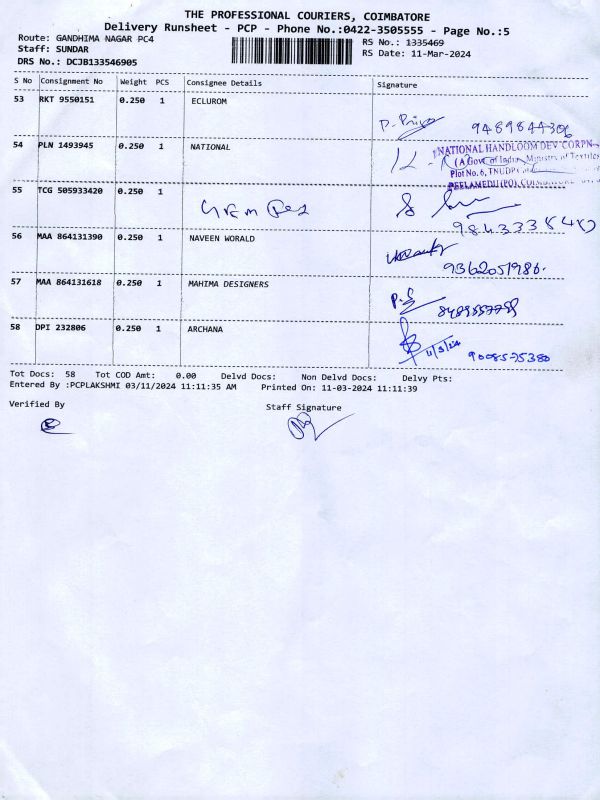 THE PROFESSIONAL COURIERS, COIMBATORE
Delivery Runsheet - PCP - Phone No.:0422-3505555 - Page No.:5
Route: GANDHIMA NAGAR PC4
RS No.: 1335469
Staff: SUNDAR
RS Date: 11-Mar-2024
DRS No.: DCJB133546905
S No Consignment No Weight PCS Consignee Details Signature
53 RKT 9550151 0.250 1 ECLUROM
P. Priya 9489844306
54 PLN 1493945 0.250 1 NATIONAL
NATIONAL HANDLOOM DEV CORPN
(A Govt of India, Ministry of Textiles
Plot No. 6, TNUDP
PEELAMEDU (PO), COIMBATORE
55 TCG 505933420 0.250 1
56 MAA 864131390 0.250 1 NAVEEN WORALD
9362051986.
57 MAA 864131618 0.250 1 MAHIMA DESIGNERS
P.S
58 DPI 232806 0.250 1 ARCHANA
11/3/24 9008575380
Tot Docs: 58 Tot COD Amt: 0.00 Delvd Docs: Non Delvd Docs: Delvy Pts:
Entered By :PCPLAKSHMI 03/11/2024 11:11:35 AM Printed On: 11-03-2024 11:11:39
Verified By
Staff Signature